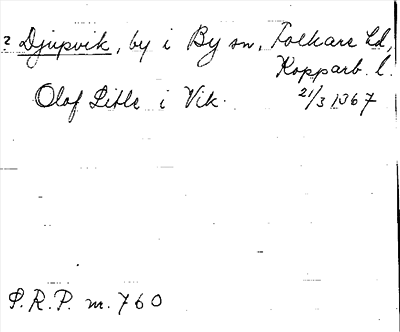 ? Djupvik, by i By sn, Folkare hd,
Kopparb. l.
Olof Litle i Vik. 21/3 1367
S.R.P. nr. 760